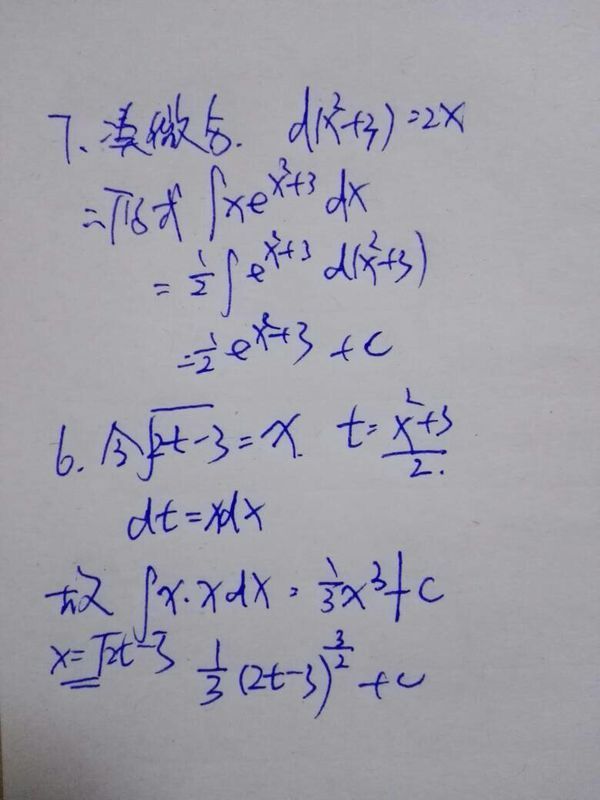 7、凑微分. d(x²+3)=2x
=原式 ∫xe^{x²+3} dx
= 1/2 ∫e^{x²+3} d(x²+3)
= 1/2 e^{x²+3} + C
6. 令√(2t-3) = x. t = (x²+3)/2.
dt = xdx
故 ∫x·xdx = 1/3 x³ + C
x=√(2t-3) 1/3 (2t-3)^{3/2} + C